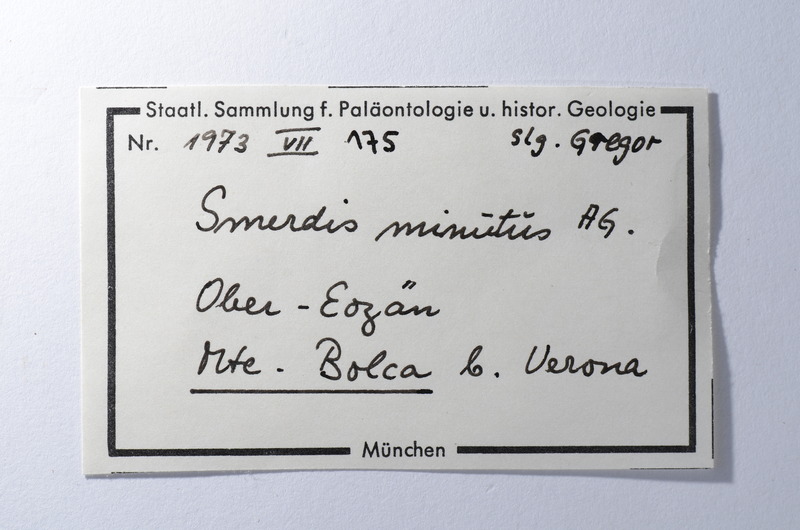 Staatl. Sammlung f. Paläontologie u. histor. Geologie
Nr. 1973 VII 175 slg. Gregor
Smerdis minutus AG.
Ober-Eozän
Mte. Bolca b. Verona
München